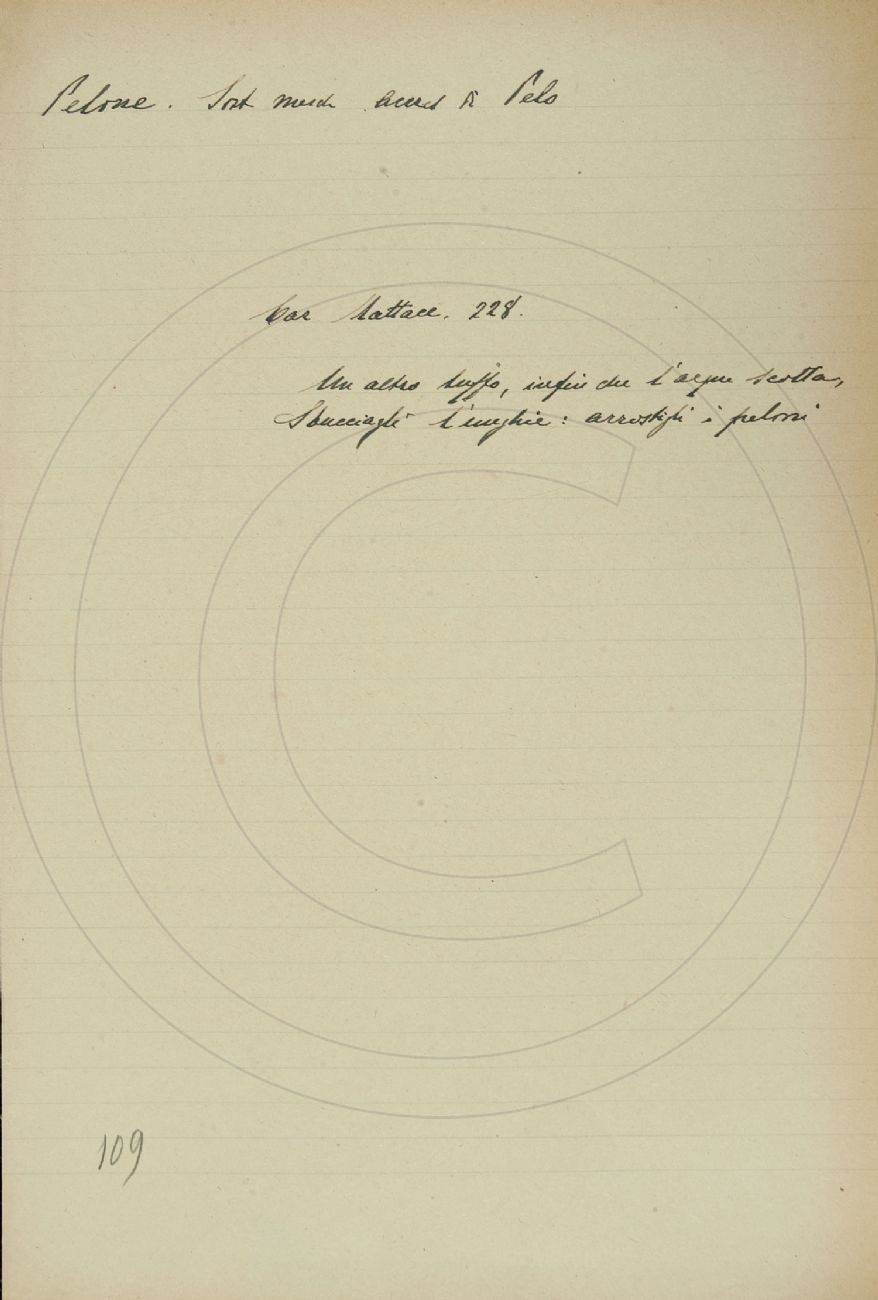 Pelone. Sost masch accres di Pelo
Car Mattacc. 228.
Un altro tuffo, infin che l'acqua scotta,
Sbucciagli l'unghie: arrostigli i peloni
109